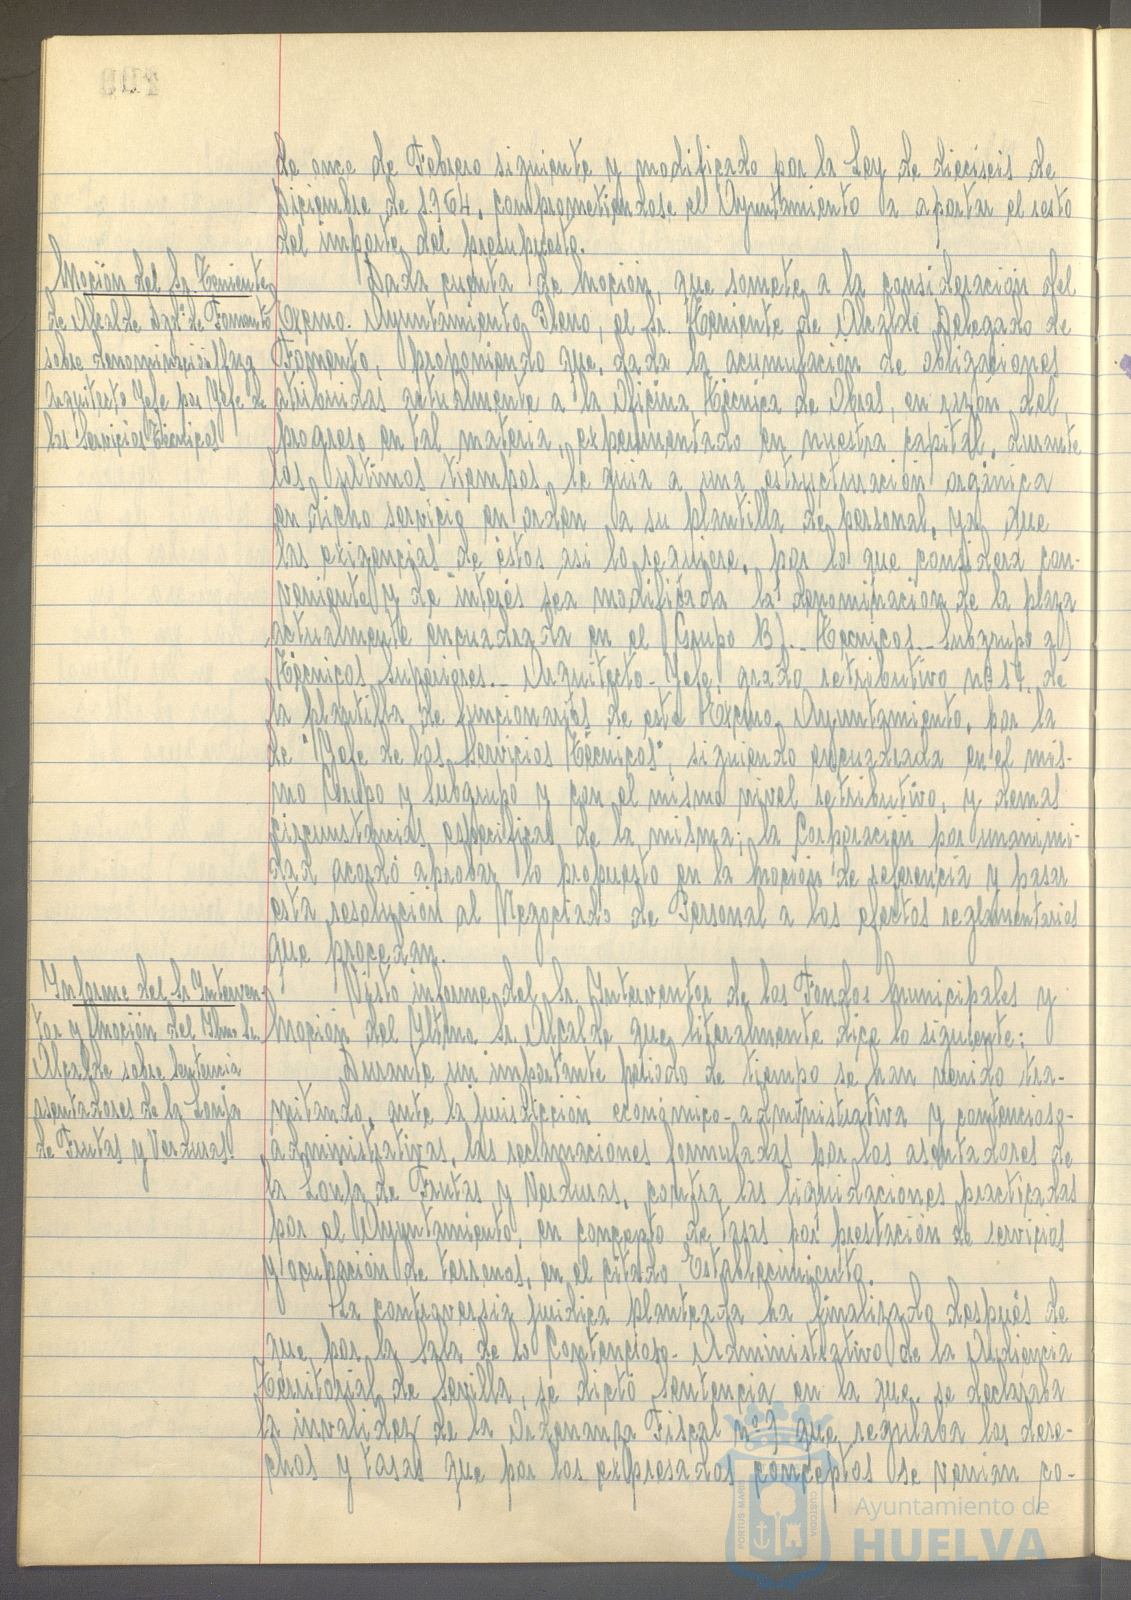 de once de Febrero siguiente y modificado por la Ley de dieciseis de
Diciembre de 1.964, comprometiendose el Ayuntamiento a aportar el resto
del importe del presupuesto.
Moción del Sr. Teniente
de Alcalde Dado. de Fomento
sobre denominación plaza
Arquitecto Jefe por Jefe de
los Servicios Técnicos
Dada cuenta de Moción, que somete a la consideración del
Excmo. Ayuntamiento Pleno, el Sr. Teniente de Alcalde Delegado de
Fomento, proponiendo que, dada la acumulación de obligaciones
atribuidas actualmente a la Oficina Técnica de Obras, en razón del
progreso en tal materia, experimentado en nuestra capital, durante
los ultimos tiempos, se guia a una estructuración orgánica
en dicho servicio en orden a su plantilla de personal, ya que
las exigencias de éstos asi lo requiere, por lo que considera con-
veniente y de interés sea modificada la denominación de la plaza
actualmente encuadrada en el Grupo B).- Técnicos.- Subgrupo a)
Técnicos Superiores.- Arquitecto-Jefe, grado retributivo nº 17, de
la plantilla de funcionarios de este Excmo. Ayuntamiento, por la
de "Jefe de los Servicios Técnicos", siguiendo encuadrada en el mis-
mo Grupo y Subgrupo y con el mismo nivel retributivo, y demas
circunstancias especificas de la misma; la Corporación por unanimi-
dad acordó aprobar lo propuesto en la Moción de referencia y pasar
esta resolución al Negociado de Personal a los efectos reglamentarios
que procedan.
Informe del Sr. Interven-
tor y Moción del Iltmo. Sr.
Alcalde sobre Sentencia
asentadores de la Lonja
de Frutas y Verduras.
Visto informe del Sr. Interventor de los Fondos Municipales y
Moción del Iltmo. Sr. Alcalde que literalmente dice lo siguiente:
Durante un importante periodo de tiempo se han venido tra-
mitando, ante la jurisdicción económico-administrativa y contencioso-
administrativas, las reclamaciones formuladas por los asentadores de
la Lonja de Frutas y Verduras, contra las liquidaciones practicadas
por el Ayuntamiento, en concepto de tasas por prestación de servicios
y ocupación de terrenos, en el citado Establecimiento.
La controversia juridica planteada ha finalizado después de
que por la Sala de lo Contencioso-Administrativo de la Audiencia
Territorial de Sevilla, se dictó sentencia en la que se declaraba
la invalidez de la Ordenanza Fiscal nº 9 que regulaba los dere-
chos y tasas que por los expresados conceptos se venian co-
PORTUS MARIS
CUSTODIA
Ayuntamiento de
HUELVA